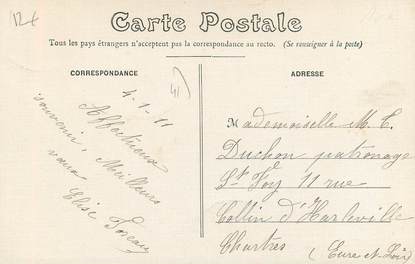 12 f
Carte Postale
Tous les pays étrangers n'acceptent pas la correspondance au recto. (Se renseigner à la poste)
CORRESPONDANCE
4-1-11
Affectueux
souvenir, Meilleurs
vœux
Elise
ADRESSE
Mademoiselle M. C.
Duchon patronage
St Foy 11 rue
Collin d'Harleville
Chartres
(Eure et Loir)